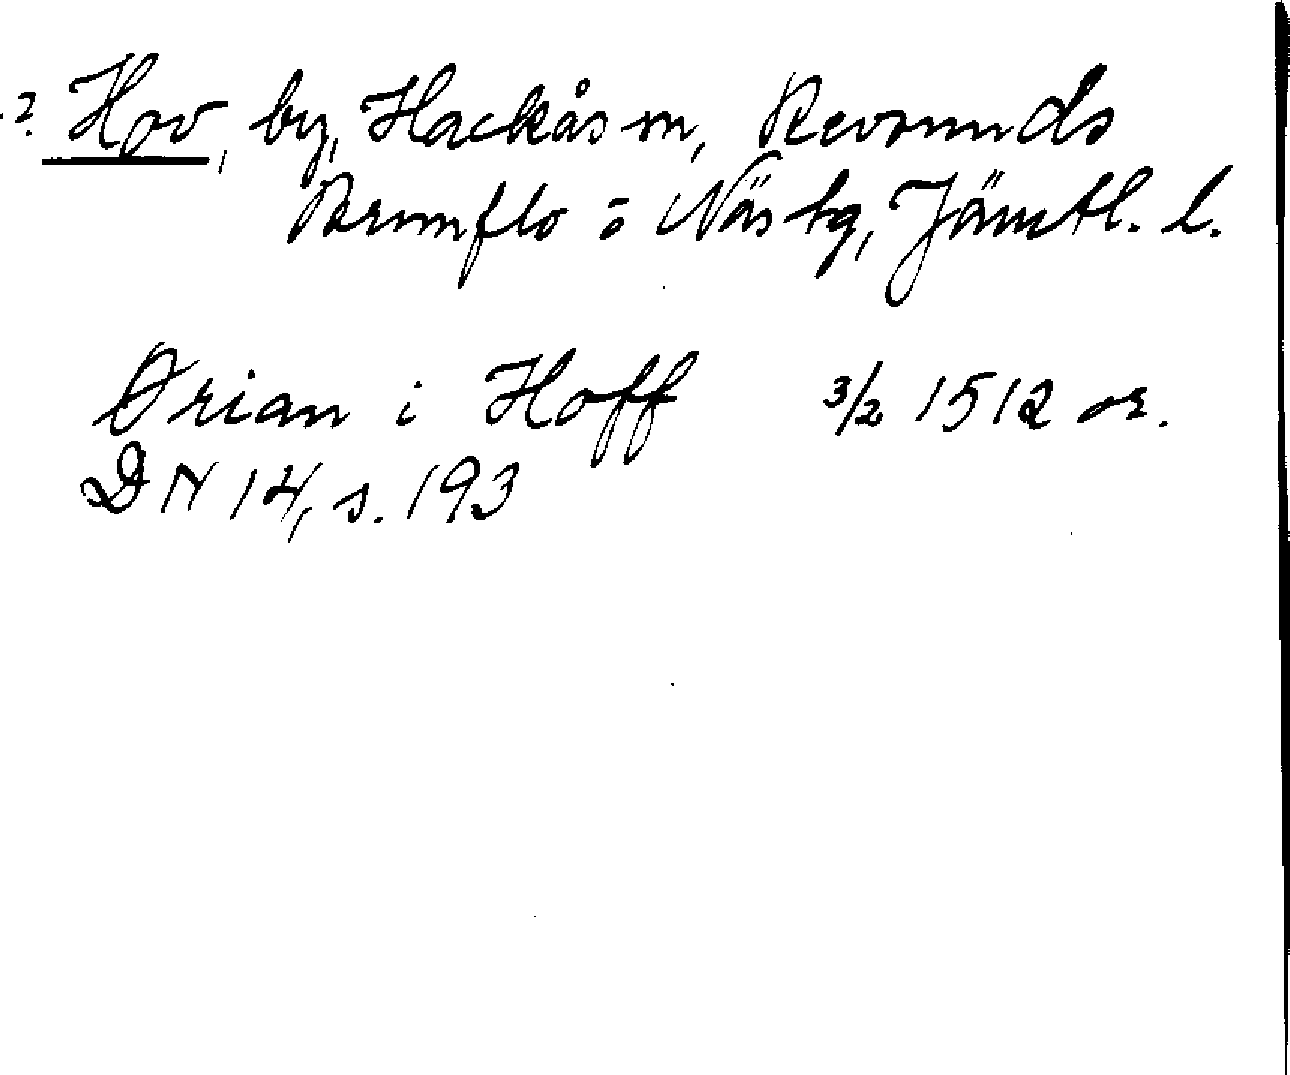 ? Hov, by, Hackås sn, Revsunds
Brunflo o Näs tg, Jämtl. l.
Ørian i Hoff 3/2 1512 or.
DN 14, s. 193